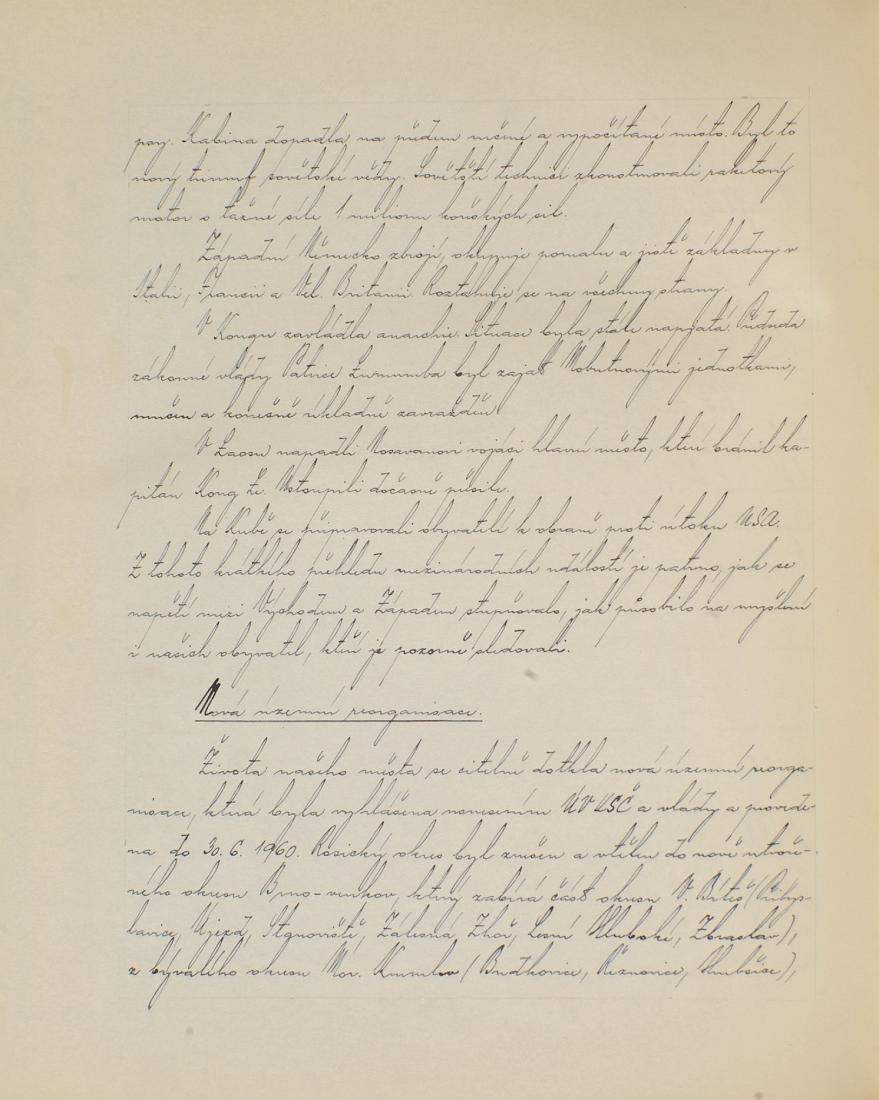 psy. Kabina dopadla na předem určené a vypočítané místo. Byl to
nový triumf sovětské vědy. Sovětští technici zkonstruovali raketový
motor o tažné síle 1 milionu koňských sil.
Západní Německo zbrojí, okupuje pomalu a jistě základny v
Italii, Francii a Vel. Britanii. Roztahuje se na všechny strany.
V Kongu zavládla anarchie. Situace byla stále napjatá. Předseda
zákonné vlády Patrice Lumumba byl zajat Mobutuovými jednotkami,
mučen a konečně úkladně zavražděn.
V Laosu napadli Nosavanovi vojáci hlavní město, které bránil ka-
pitán Kong Le. Ustoupili dočasně přesile.
Na Kubě se připravovali obyvatelé k obraně proti útoku USA.
Z tohoto krátkého přehledu mezinárodních událostí je patrno, jak se
napětí mezi Východem a Západem stupňovalo, jak působilo na myšlení
i našich obyvatel, kteří je pozorně sledovali.
Nová územní reorganisace.
Života našeho města se citelně dotkla nová územní reorga-
nisace, která byla vyhlášena usnesením ÚV KSČ a vlády a provede-
na do 30. 6. 1960. Rosický okres byl zrušen a vtělen do nově utvoře-
ného okresu Brno-venkov, který zabírá část okresu V. Bíteš (Přiby-
slavice, Újezd, Stanoviště, Zálesná, Zhoř, Lesní Hluboké, Zbraslav),
z bývalého okresu Mor. Krumlov (Budkovice, Řeznovice, Hrubšice),